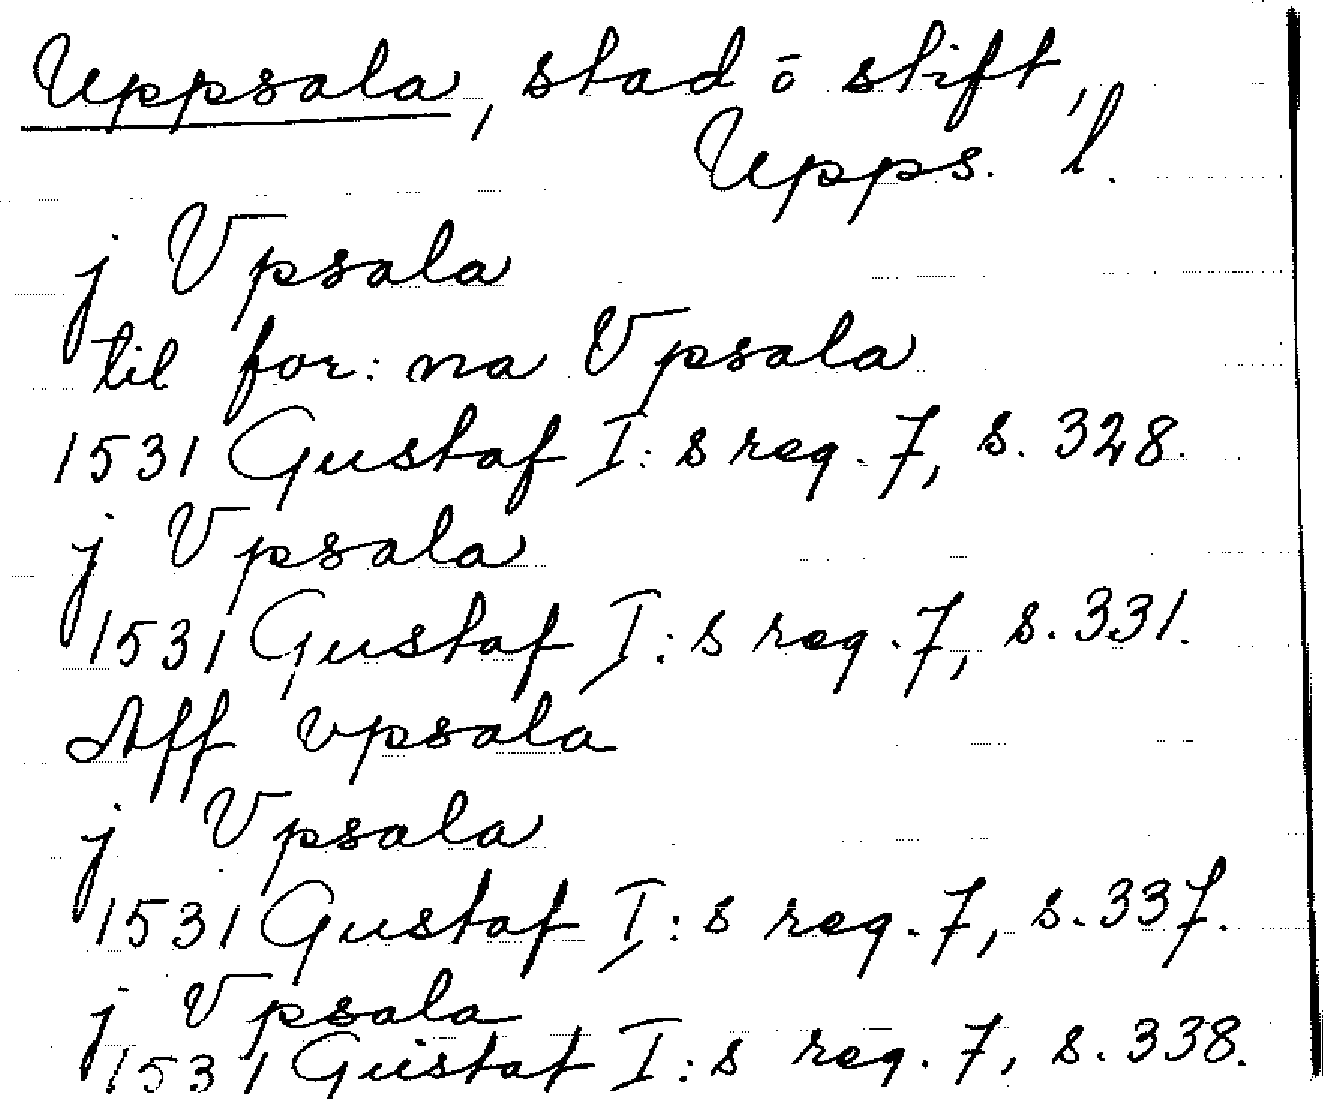 Uppsala, stad o stift,
Upps. l.
j Vpsala
til for: na Vpsala
1531 Gustaf I: s reg. 7, s. 328.
j Vpsala
1531 Gustaf I: s reg. 7, s. 331.
Aff vpsala
j Vpsala
1531 Gustaf I: s reg. 7, s. 337.
j Vpsala
1531 Gustaf I: s reg. 7, s. 338.